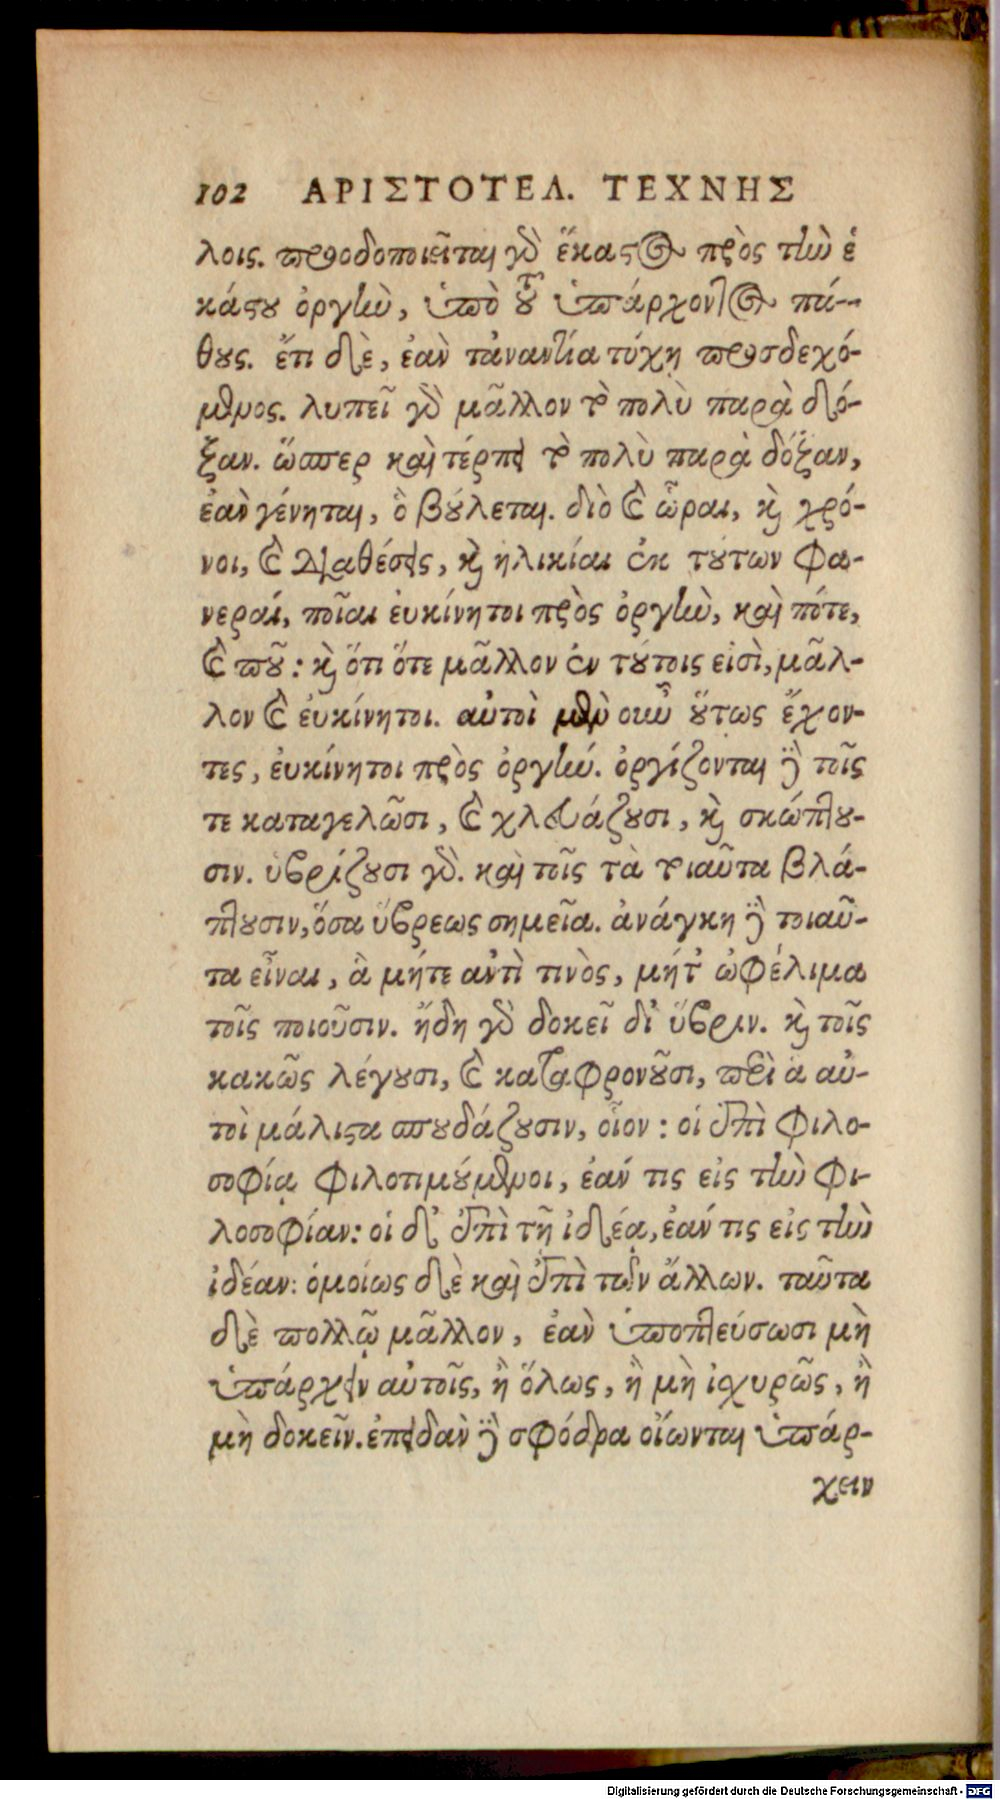 102 ΑΡΙΣΤΟΤΕΛ. ΤΕΧΝΗΣ
λοις. προοδοποιεῖται γὸ ἕκαστος πρὸς τὴν ἑ
κάστου ὀργὴν, ὑπὸ τοῦ ὑπάρχοντος πά--
θους. ἔτι δὲ, ἐὰν τἀναντία τύχῃ προσδεχό-
μενος. λυπεῖ γὸ μᾶλλον τὸ πολὺ παρὰ δό-
ξαν. ὥσπερ καὶ τέρπει τὸ πολὺ παρὰ δόξαν,
ἐὰν γένηται, ὃ βούλεται. διὸ καὶ ὧραι, καὶ χρό-
νοι, καὶ διαθέσεις, καὶ ἡλικίαι ἐκ τούτων φα-
νεραί, ποῖαι εὐκίνητοι πρὸς ὀργὴν, καὶ πότε,
καὶ ποῦ: καὶ ὅτι ὅτε μᾶλλον ἐν τούτοις εἰσὶ, μᾶλ-
λον καὶ εὐκίνητοι. αὐτοὶ μὲν οὖν οὕτως ἔχον-
τες, εὐκίνητοι πρὸς ὀργήν. ὀργίζονται δὲ τοῖς
τε καταγελῶσι, καὶ χλευάζουσι, καὶ σκώπτου-
σιν. ὑβρίζουσι γὸ. καὶ τοῖς τὰ τοιαῦτα βλά-
πτουσιν, ὅσα ὕβρεως σημεῖα. ἀνάγκη δὲ τοιαῦ-
τα εἶναι, ἃ μήτε αὐτὶ τινὸς, μήτ' ὠφέλιμα
τοῖς ποιοῦσιν. ἤδη γὸ δοκεῖ δι' ὕβριν. καὶ τοῖς
κακῶς λέγουσι, καὶ καταφρονοῦσι, περὶ ἃ αὐ-
τοὶ μάλιστα σπουδάζουσιν, οἷον: οἱ ἐπὶ φιλο-
σοφίᾳ φιλοτιμούμενοι, ἐάν τις εἰς τὴν φι-
λοσοφίαν: οἱ δ' ἐπὶ τῇ ἰδέᾳ, ἐάν τις εἰς τὴν
ἰδέαν: ὁμοίως δὲ καὶ ἐπὶ τῶν ἄλλων. ταῦτα
δὲ πολλῷ μᾶλλον, ἐὰν ὑποπτεύσωσι μὴ
ὑπάρχειν αὐτοῖς, ἢ ὅλως, ἢ μὴ ἰσχυρῶς, ἢ
μὴ δοκεῖν. ἐπειδὰν δὲ σφόδρα οἴωνται ὑπάρ-
χειν
Digitalisierung gefördert durch die Deutsche Forschungsgemeinschaft - DFG